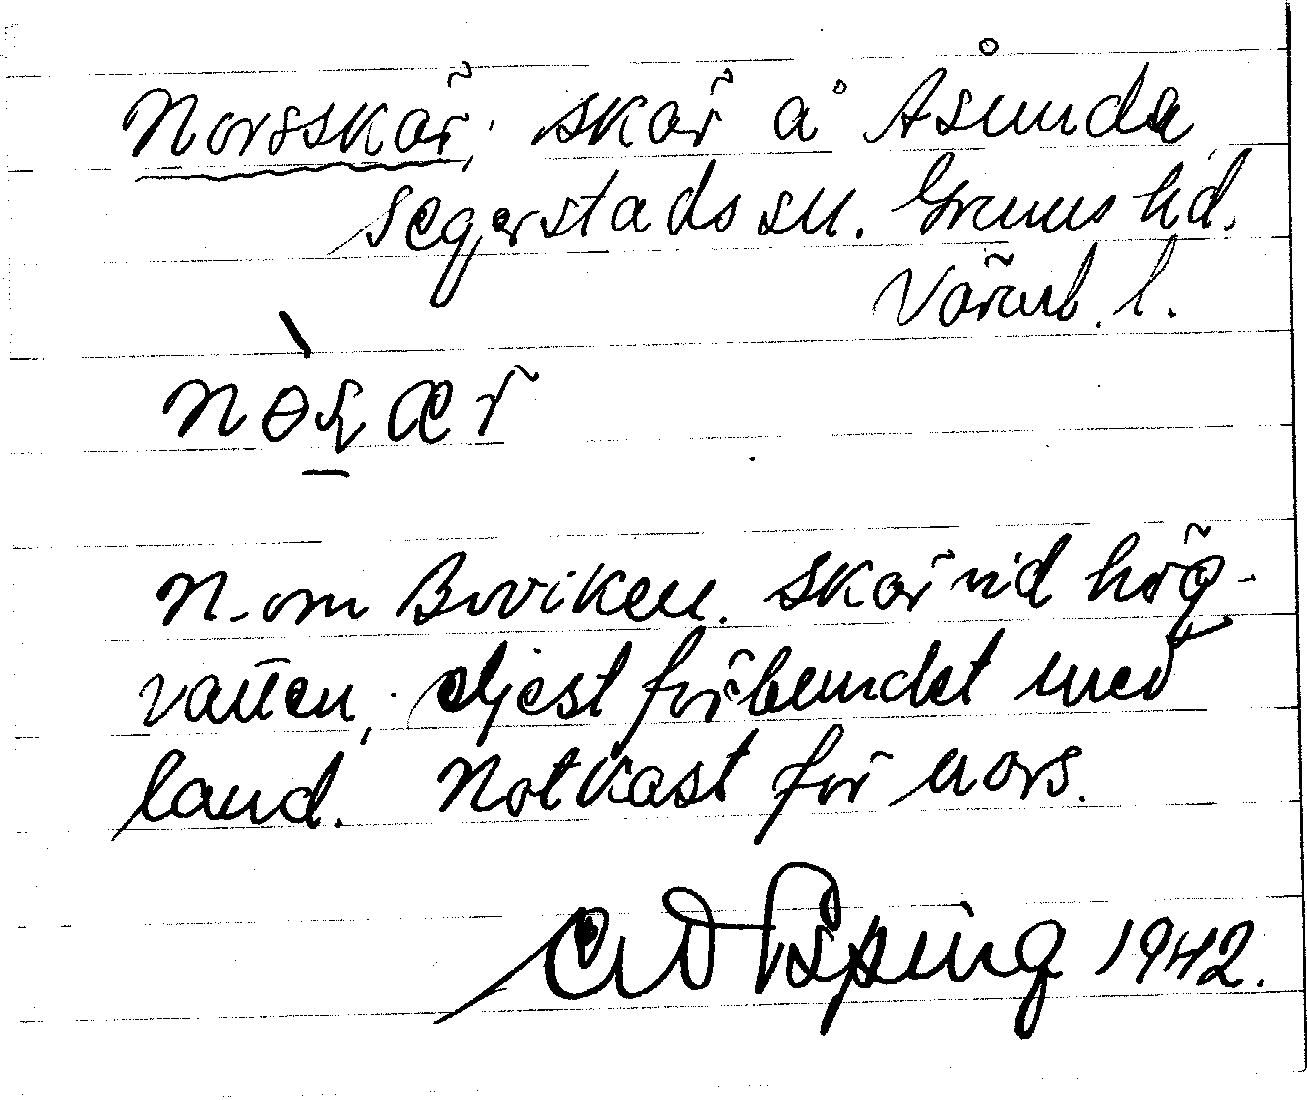 Norsskär, skär å Åsunda,
Segerstads sn. Grums hd.
Värml. l.
N. om Boviken. Skär vid hög-
vatten, eljest förbundet med
land. Notkast för nors.
1942.